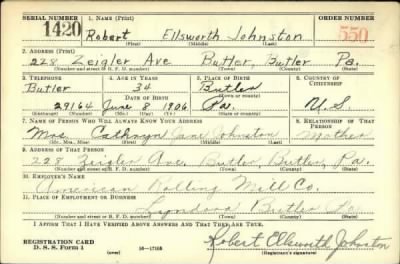 SERIAL NUMBER 1. NAME (Print) ORDER NUMBER
1420 Robert Ellsworth Johnston 550
(First) (Middle) (Last)
2. ADDRESS (Print)
228 Zeigler Ave Butler, Butler Pa.
(Number and street or R. F. D. number) (Town) (County) (State)
3. TELEPHONE 4. AGE IN YEARS 5. PLACE OF BIRTH 6. COUNTRY OF CITIZENSHIP
Butler 34 Butler
DATE OF BIRTH (Town or county)
29164 June 8 1906 Pa. U.S
(Exchange) (Number) (Mo.) (Day) (Yr.) (State or country)
7. NAME OF PERSON WHO WILL ALWAYS KNOW YOUR ADDRESS 8. RELATIONSHIP OF THAT PERSON
Mrs. Cathryn Jane Johnston Mother
(Mr., Mrs., Miss) (First) (Middle) (Last)
9. ADDRESS OF THAT PERSON
228 Zeigler Ave. Butler, Butler, Pa.
(Number and street or R. F. D. number) (Town) (County) (State)
10. EMPLOYER'S NAME
American Rolling Mill Co.
11. PLACE OF EMPLOYMENT OR BUSINESS
Lyndora Butler Pa
(Number and street or R. F. D. number) (Town) (County) (State)
I AFFIRM THAT I HAVE VERIFIED ABOVE ANSWERS AND THAT THEY ARE TRUE.
REGISTRATION CARD
D. S. S. Form 1 (over) 16—17105 Robert Ellsworth Johnston
(Registrant's signature)